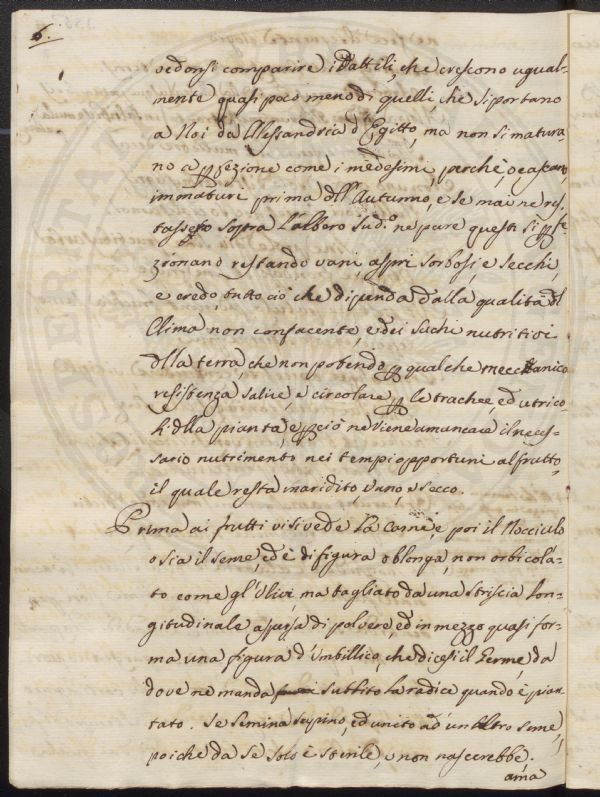 6.
vedonsi comparire i Dattili, che crescono ugual-
mente quasi poco meno di quelli che si portano
a Noi da Alessandria d'Egitto, ma non si matura-
no a pfezione come i medesimi, perchè, o cascano
immaturi prima dll'Autunno, e se mai ne res-
tassero sopra l'albero sud.o ne pure questi si pfe-
zionano restando vani, aspri sorbosi e secchi,
e credo, tutto ciò che dipenda dalla qualità dl
Clima non confacente, e dei suchi nutritivi
dlla terra, che non potendo p qualche meccanica
resistenza salire, e circolare p le trachee, ed utrico-
li dlla pianta, e pciò ne viene a mancare il neces-
sario nutrimento nei tempi opportuni al frutto,
il quale resta inaridito, vano, e secco.
Prima ai frutti visi vede la Carne, e poi il Nocciulo
o sia il seme, ed è di figura oblonga, non orbicola-
to come gl'Ulivi, ma tagliato da una striscia lon-
gitudinale aspersa di polvere, ed in mezzo quasi for-
ma una figura d'Umbillico, che dicesi il Germe, da
dove ne manda subbito la radice quando è pian
tato. Se semina supino, ed unito ad un'altro seme,
poiche da se solo è sterile, e non nascerebbe.
ama